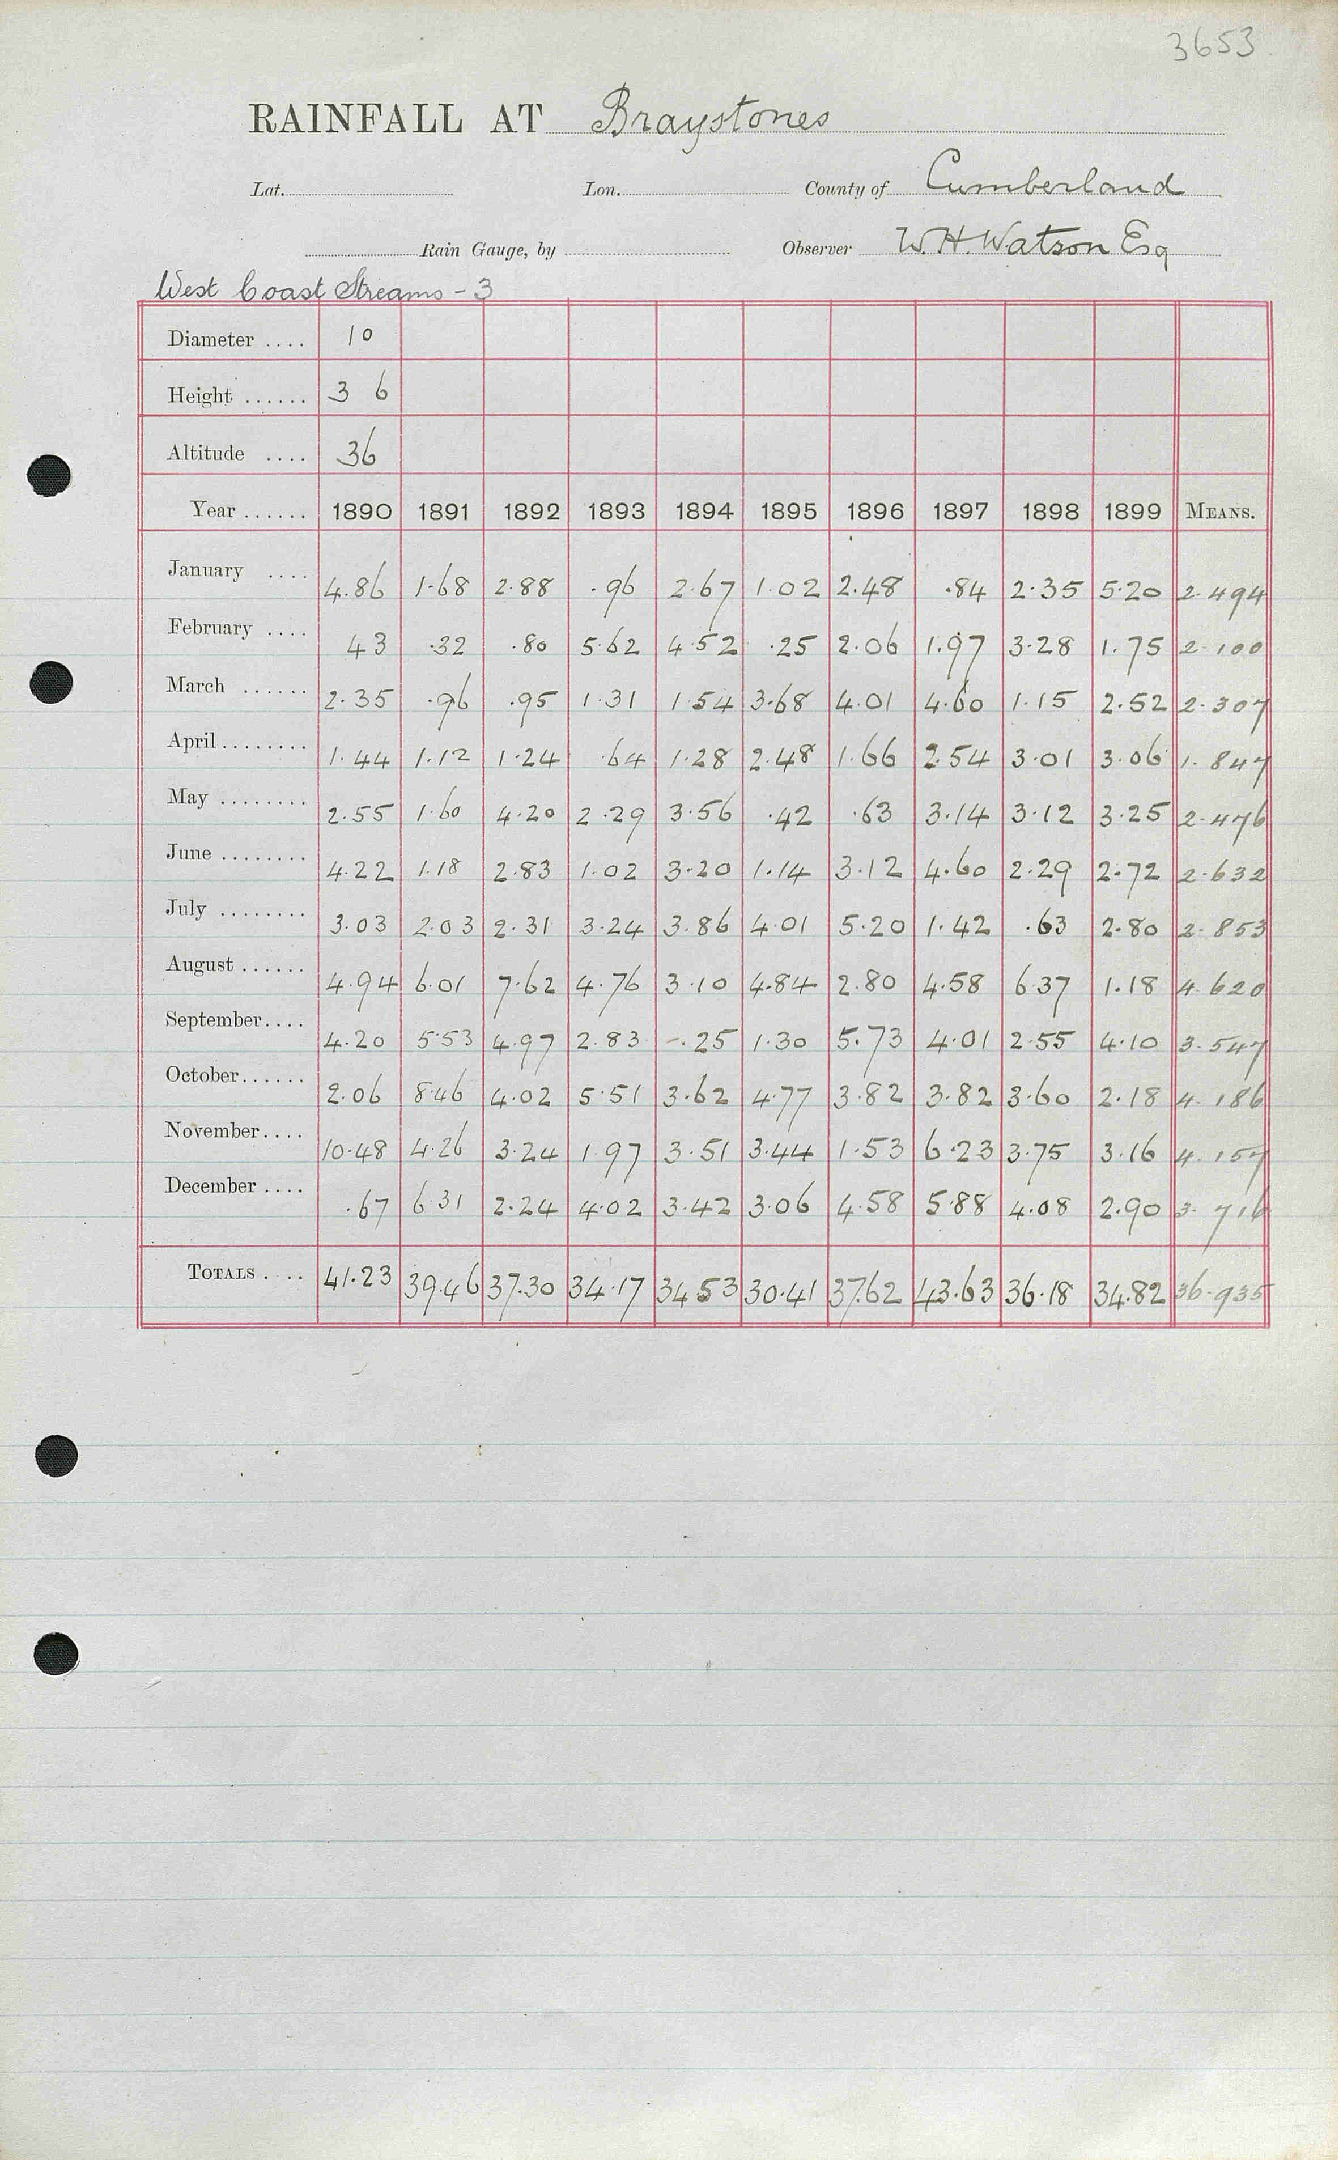 3653
RAINFALL AT Braystones
Lat. Lon. County of Cumberland
Rain Gauge, by Observer W. H. Watson Esq
West Coast Streams - 3
Diameter .... 10
Height ...... 3 6
Altitude .... 36
Year ...... 1890 1891 1892 1893 1894 1895 1896 1897 1898 1899 MEANS.
January .... 4.86 1.68 2.88 .96 2.67 1.02 2.48 .84 2.35 5.20 2.494
February .... 43 .32 .80 5.62 4.52 .25 2.06 1.97 3.28 1.75 2.100
March ...... 2.35 .96 .95 1.31 1.54 3.68 4.01 4.60 1.15 2.52 2.307
April ........ 1.44 1.12 1.24 .64 1.28 2.48 1.66 2.54 3.01 3.06 1.847
May ........ 2.55 1.60 4.20 2.29 3.56 .42 .63 3.14 3.12 3.25 2.476
June ........ 4.22 1.18 2.83 1.02 3.20 1.14 3.12 4.60 2.29 2.72 2.632
July ........ 3.03 2.03 2.31 3.24 3.86 4.01 5.20 1.42 .63 2.80 2.853
August ...... 4.94 6.01 7.62 4.76 3.10 4.84 2.80 4.58 6.37 1.18 4.620
September .... 4.20 5.53 4.97 2.83 -.25 1.30 5.73 4.01 2.55 4.10 3.547
October ...... 2.06 8.46 4.02 5.51 3.62 4.77 3.82 3.82 3.60 2.18 4.186
November .... 10.48 4.26 3.24 1.97 3.51 3.44 1.53 6.23 3.75 3.16 4.157
December .... .67 6.31 2.24 4.02 3.42 3.06 4.58 5.88 4.08 2.90 3.716
TOTALS .... 41.23 39.46 37.30 34.17 34.53 30.41 37.62 43.63 36.18 34.82 36.935